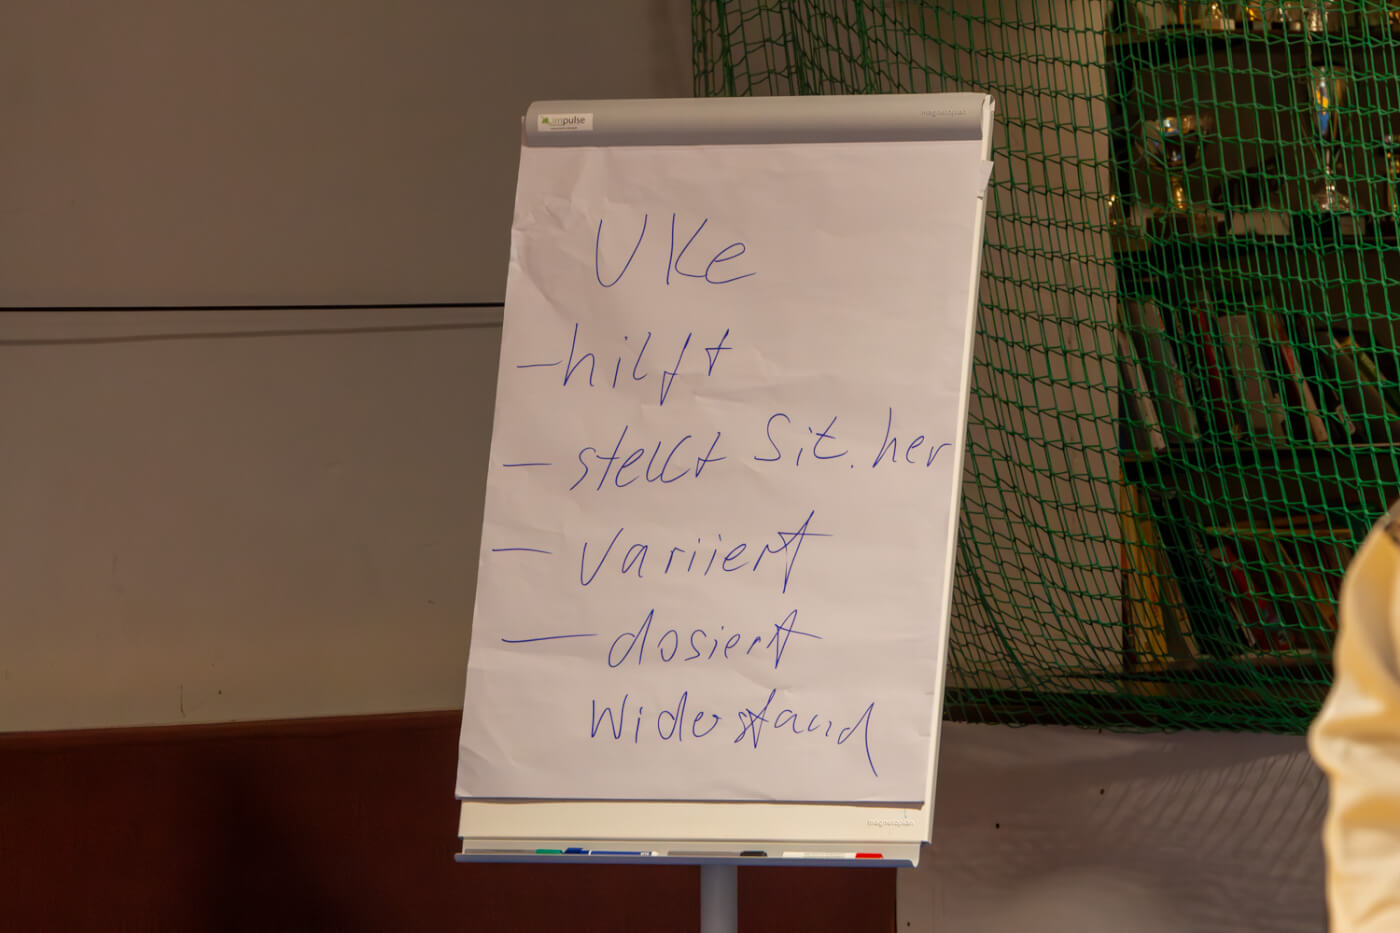 impulse
magnetoplan
Uke
- hilft
- stellt Sit. her
- variiert
- dosiert
Widerstand
magnetoplan